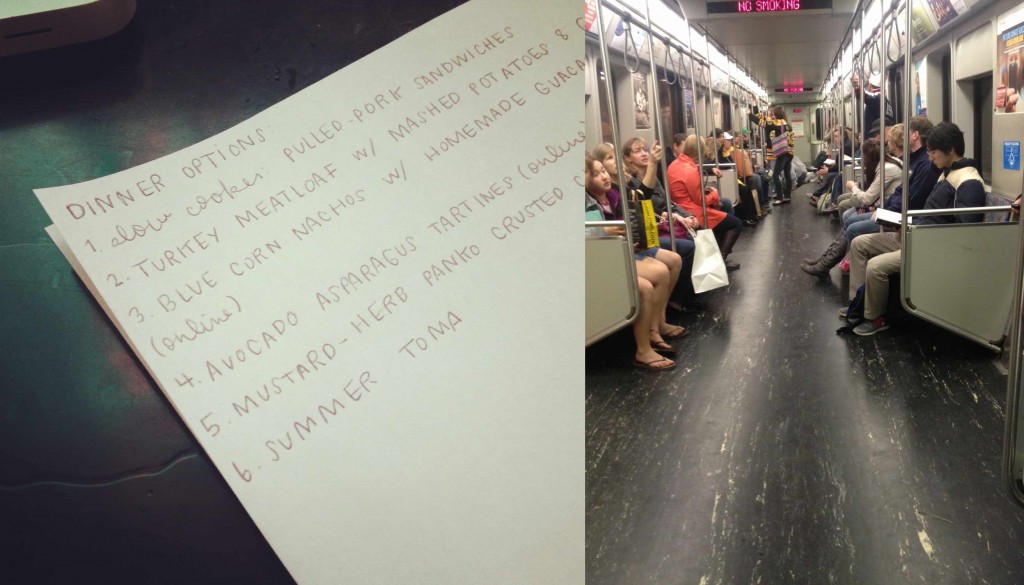 DINNER OPTIONS:
1. slow cooker: PULLED-PORK SANDWICHES
2. TURKEY MEATLOAF W/ MASHED POTATOES &
3. BLUE CORN NACHOS W/ HOMEMADE GUACA
(online)
4. AVOCADO ASPARAGUS TARTINES (online)
5. MUSTARD-HERB PANKO CRUSTED
6. SUMMER TOMA
NO SMOKING